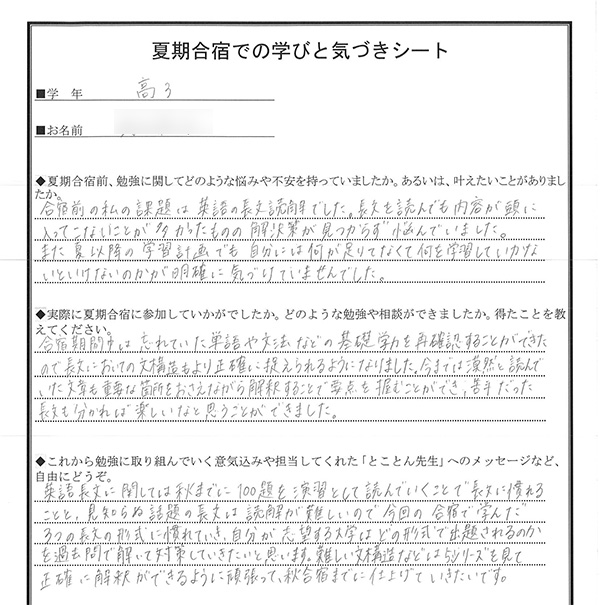 夏期合宿での学びと気づきシート
■学　年　高3
■お名前
◆夏期合宿前、勉強に関してどのような悩みや不安を持っていましたか。あるいは、叶えたいことがありまし
たか。
合宿前の私の課題は英語の長文読解でした。長文を読んでも内容が頭に
入ってこないことが多かったものの解決策が見つからず悩んでいました。
また夏以降の学習計画でも自分には何が足りてなくて何を学習していかな
いといけないのかが明確に気づけていませんでした。
◆実際に夏期合宿に参加していかがでしたか。どのような勉強や相談ができましたか。得たことを教
えてください。
合宿期間中は忘れていた単語や文法などの基礎学力を再確認することができた
ので長文においての文構造もより正確に捉えられるようになりました。今までは漠然と読んで
いた文章も重要な箇所をおさえながら解釈することで要点を掴むことができ、苦手だった
長文も分かれば楽しいなと思うことができました。
◆これから勉強に取り組んでいく意気込みや担当してくれた「とことん先生」へのメッセージなど、
自由にどうぞ。
英語長文に関しては秋までに100題を演習として読んでいくことで長文に慣れる
ことと、見知らぬ話題の長文は読解が難しいので今回の合宿で学んだ
3つの長文の形式に慣れていき、自分が志望する大学はどの形式で出題されるのか
を過去問で解いて対策していきたいと思います。難しい文構造などは5シリーズを見て
正確に解釈ができるように頑張って、秋合宿までに仕上げていきたいです。